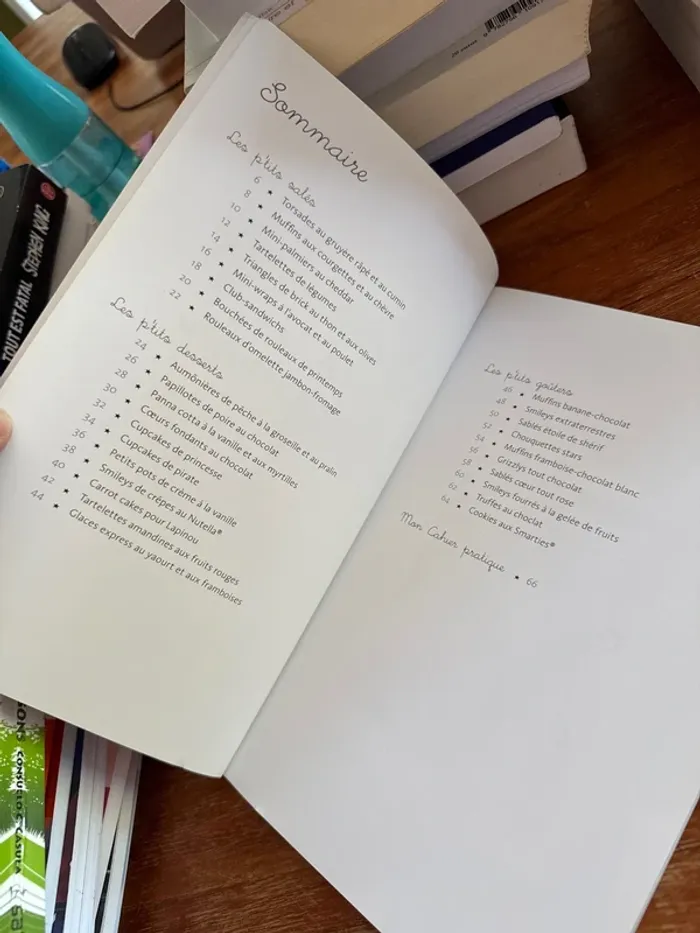 Sommaire
Les p'tits salés
6 ★ Torsades au gruyère râpé et au cumin
8 ★ Muffins aux courgettes et au chèvre
10 ★ Mini-palmiers au cheddar
12 ★ Tartelettes de légumes
14 ★ Triangles de brick au thon et aux olives
16 ★ Mini-wraps à l'avocat et au poulet
18 ★ Club-sandwichs
20 ★ Bouchées de rouleaux de printemps
22 ★ Rouleaux d'omelette jambon-fromage
Les p'tits desserts
24 ★ Aumônières de pêche à la groseille et au pralin
26 ★ Papillotes de poire au chocolat
28 ★ Panna cotta à la vanille et aux myrtilles
30 ★ Cœurs fondants au chocolat
32 ★ Cupcakes de princesse
34 ★ Cupcakes de pirate
36 ★ Petits pots de crème à la vanille
38 ★ Smileys de crêpes au Nutella®
40 ★ Carrot cakes pour Lapinou
42 ★ Tartelettes amandines aux fruits rouges
44 ★ Glaces express au yaourt et aux framboises
Les p'tits goûters
46 ★ Muffins banane-chocolat
48 ★ Smileys extraterrestres
50 ★ Sablés étoile de shérif
52 ★ Chouquettes stars
54 ★ Muffins framboise-chocolat blanc
56 ★ Grizzlys tout chocolat
58 ★ Sablés cœur tout rose
60 ★ Smileys fourrés à la gelée de fruits
62 ★ Truffes au choclat
64 ★ Cookies aux Smarties®
Mon Cahier pratique ★ 66
TOUT EST FATAL STEPHEN KING
CONSUELO C. CASULA